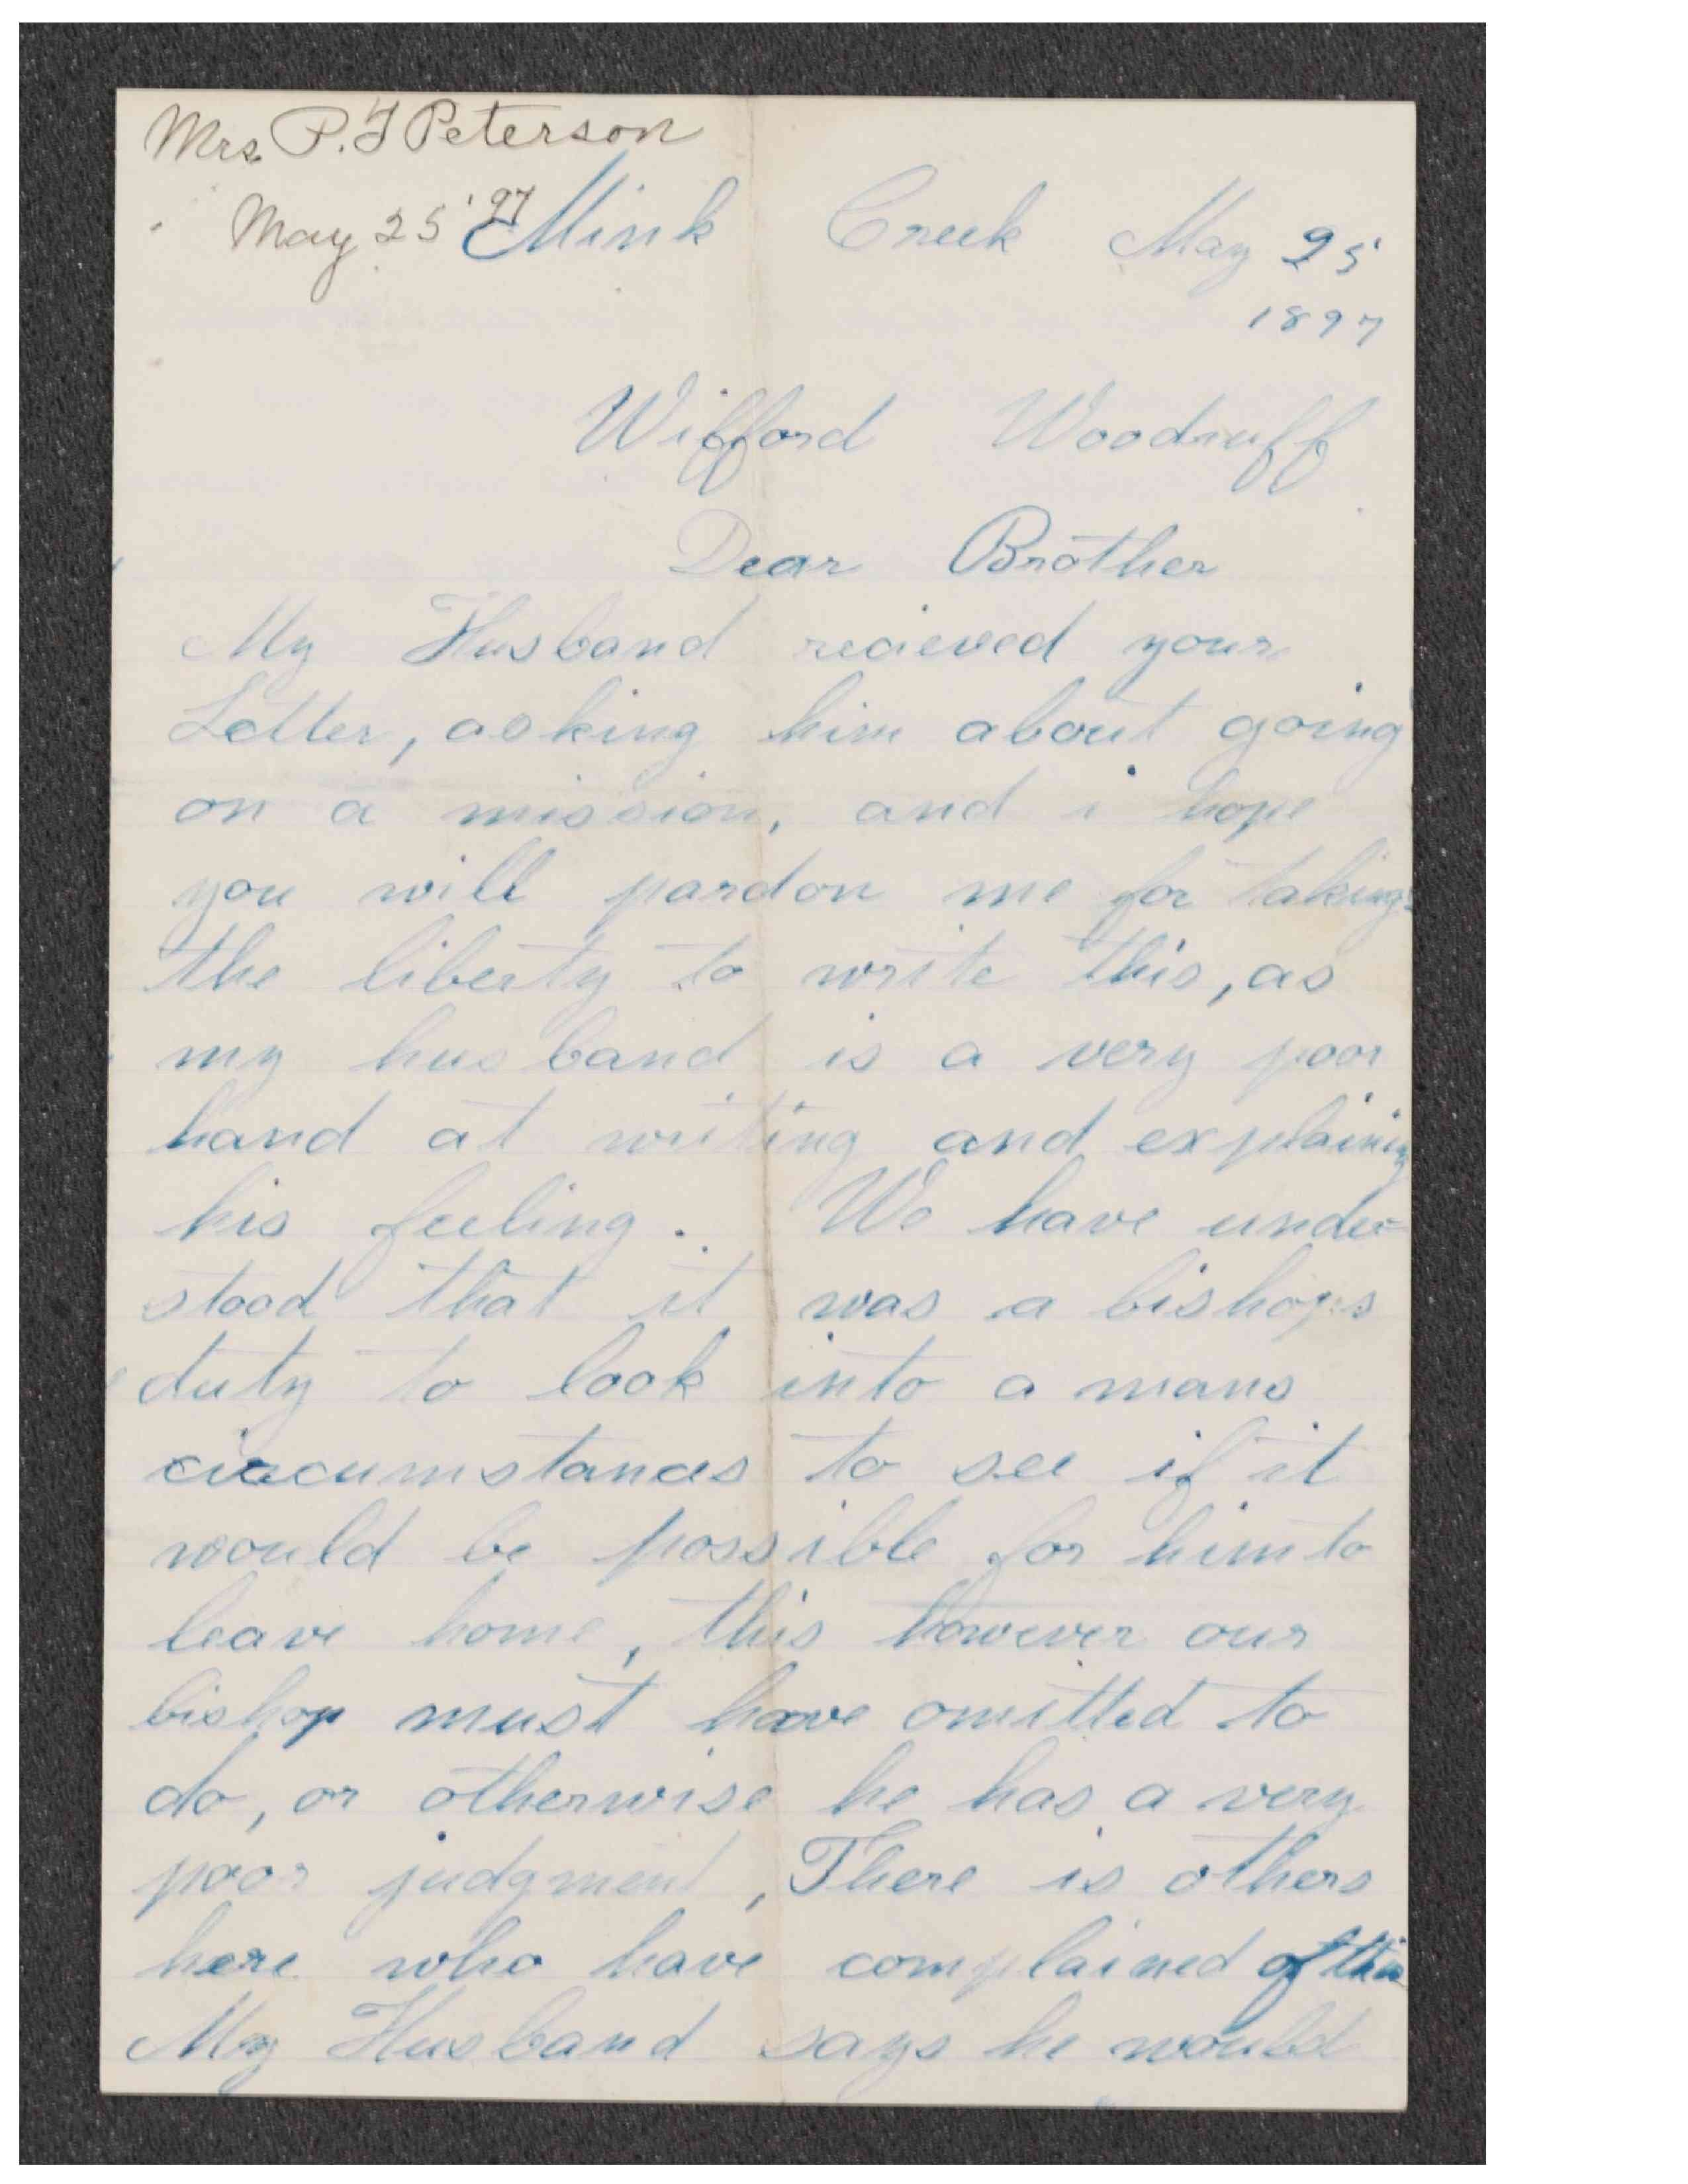 Mrs P. F Peterson
May 25 '97
Mink Creek May 25
1897
Wifford Woodruff
Dear Brother
My Husband recieved your
Letter, asking him about going
on a mission, and i hope
you will pardon me for taking
the liberty to write this, as
my husband is a very poor
hand at writing and explaining
his feeling. We have under-
stood that it was a bishops
duty to look into a mans
circumstances to see if it
would be possible for him to
leave home, this however our
bishop must have omitted to
do, or otherwise he has a very
poor judgment, There is others
here who have complained of this
My Husband says he would